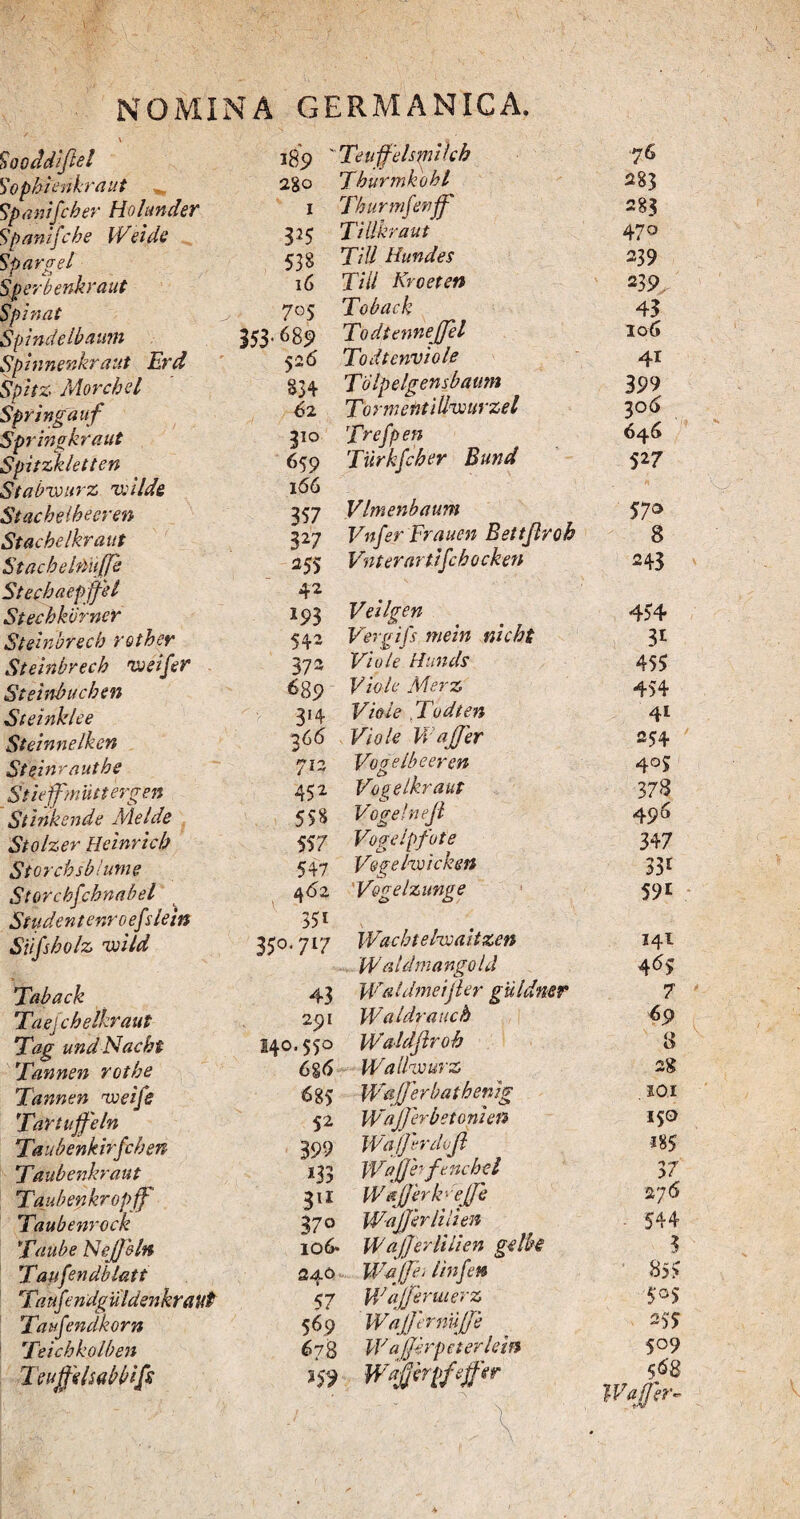 NOMINA GERMANICA.
Sooddiſtel 189
Sophienkraut 280
Spaniſcher Holunder 1
Spaniſche Weide 325
Spargel 538
Sperbenkraut 16
Spinat 705
Spindelbaum 353. 689
Spinnenkraut Erd 526
Spitz Morchel 834
Springauf 62
Springkraut 310
Spitzkletten 659
Stabwurz wilde 166
Stachelbeeren 357
Stachelkraut 327
Stachelnüſſe 255
Stechaepffel 42
Stechkörner 193
Steinbrech rother 542
Steinbrech weiſer 372
Steinbuchen 689
Steinklee 314
Steinnelken 366
Steinrauthe 712
Stieffmüttergen 452
Stinkende Melde 558
Stolzer Heinrich 557
Storchsblume 547
Storchſchnabel 462
Studentenroeſslein 351
Süſsholz wild 350. 717
Taback 43
Taeſchelkraut 291
Tag und Nacht 140. 550
Tannen rothe 686
Tannen weiſe 685
Tartuffeln 52
Taubenkirſchen 399
Taubenkraut 133
Taubenkropff 311
Taubenrock 370
Taube Neſſeln 106
Tauſendblatt 240
Tauſendgüldenkraut 57
Tauſendkorn 569
Teichkolben 678
Teuffelsabbiſs 159
Teuffelsmilch 76
Thurmkohl 283
Thurmſenff 283
Tillkraut 470
Till Hundes 239
Till Kroeten 239
Toback 43
Todtenneſſel 106
Todtenviole 41
Tölpelgensbaum 399
Tormentillwurzel 306
Treſpen 646
Türkſcher Bund 527
Vlmenbaum 570
Vnſer Frauen Bettſtroh 8
Vnterartiſchocken 243
Veilgen 454
Vergiſs mein nicht 31
Viole Hunds 455
Viole Merz 454
Viole Todten 41
Viole Waſſer 254
Vogelbeeren 405
Vogelkraut 378
Vogelneſt 496
Vogelpfote 347
Vogelwicken 331
Vogelzunge 591
Wachtelwaitzen 141
Waldmangold 465
Waldmeiſter güldner 7
Waldrauch 69
Waldſtroh 8
Wallwurz 28
Waſſerbathenig 101
Waſſerbetonien 150
Waſſerdoſt 185
Waſſerfenchel 37
Waſſerkreſſe 276
Waſſerlilien 544
Waſſerlilien gelbe 3
Waſſerlinſen 855
Waſſermerz 505
Waſſernüſſe 255
Waſſerpeterlein 509
Waſſerpfeffer 568
Waſſer-